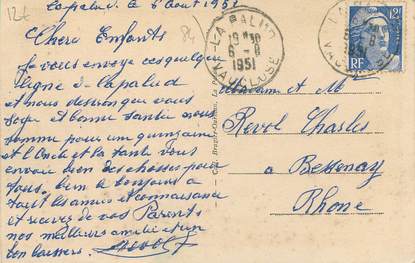 Lapalud, le 6 Août 1951
Chers Enfants
je vous envoye ces quelques
ligne de lapalud
et nous desirons que vous
soyer en bonne santée nous
somme pour une quinzaine
et l'Oncle et la tante vous
envoie bien des choses pour
vous. bien le bonjours à
tout les amies et connaissance
et recevez de vos Parents
nos meilleurs amitiés et un
bon baisers. Revol
LA PALUD
19 30
6 - 8
1951
VAUCLUSE
12F
RF
Madame et M
Revol Charles
à Bessenay
Rhône